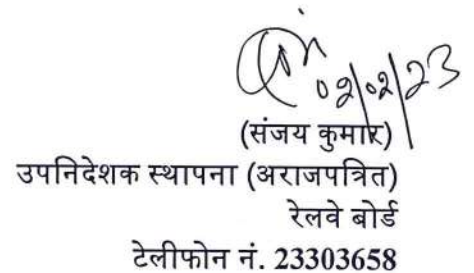 02/02/23
(संजय कुमार)
उपनिदेशक स्थापना (अराजपत्रित)
रेलवे बोर्ड
टेलीफोन नं. 23303658